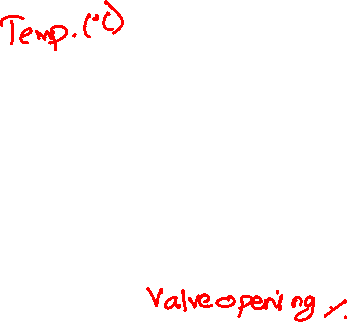 Temp. (°C)
Valve opening %